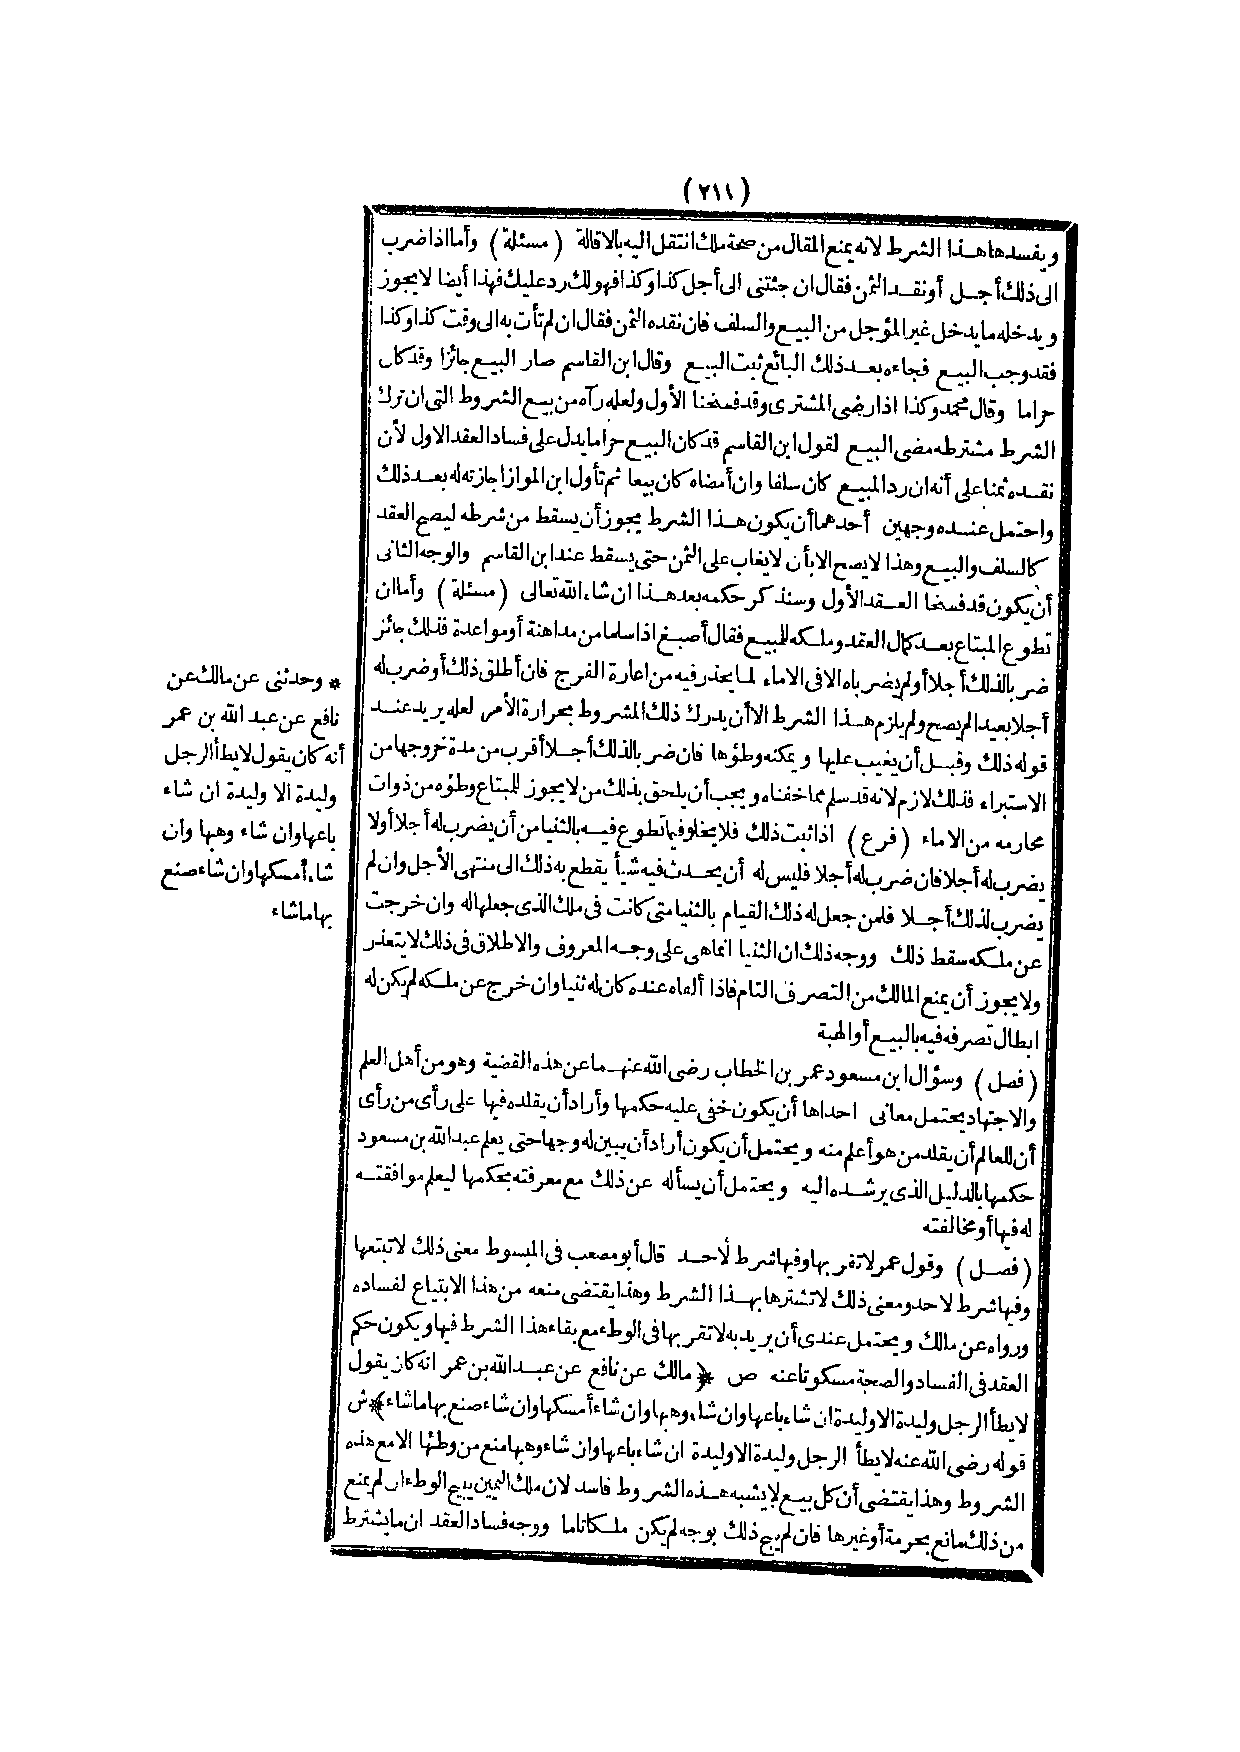 (٢١١)
ويفسدها هذا الشرط لانه يمنع المقال من صحة ملك انتقل اليه بالاقالة (مسئلة) وأما اذا ضرب
الى ذلك أجل أو نقد الثمن فقال ان جئتنى الى أجل كذا وكذا فهو لك رد عليك فهذا أيضا لا يجوز
ويدخله ما يدخل غير المؤجل من البيع والسلف فان نقده الثمن فقال ان لم تأت به الى وقت كذا وكذا
فقد وجب البيع فجاءه بعد ذلك البائع ثبت البيع وقال ابن القاسم صار البيع جائزا وقد كان
حراما وقال محمد وكذا اذا رضى المشترى وقد فسخنا الأول ولعله رآه من بيع الشروط التى ان ترك
الشرط مشترطه مضى البيع لقول ابن القاسم قد كان البيع حراما يدل على فساد العقد الاول لأن
نقده ثمنا على أنه ان رد المبيع كان سلفا وان أمضاه كان بيعا ثم تأول ابن المواز اجازته له بعد ذلك
واحتمل عنده وجهين أحدهما أن يكون هذا الشرط يجوز أن يسقط من شرطه ليصح العقد
كالسلف والبيع وهذا لا يصح الا بأن لا يغاب على الثمن حتى يسقط عند ابن القاسم والوجه الثانى
أن يكون قد فسخا العقد الأول وسنذكر حكمه بعد هذا ان شاء الله تعالى (مسئلة) وأما ان
تطوع المبتاع بعد كمال العقد وملكه للمبيع فقال أصبغ اذا سلما من مداهنة أو مواعدة فذلك جائز
ضربا لذلك أجلا أو لم يضرباه الا فى الاماء لما يحذر فيه من اعارة الفرج فان أطلق ذلك أو ضرب له
أجلا بعيدا لم يصح ولم يلزم هذا الشرط الا أن يدرك ذلك المشروط بحرارة الأمر لعله يريد عند
قوله ذلك وقبل أن يغيب عليها ويمكنه وطؤها فان ضربا لذلك أجلا أقرب من مدة خروجها من
الاستبراء فذلك لازم لانه قد سلم مما خفناه ويجب أن يلحق بذلك من لا يجوز للمبتاع وطؤه من ذوات
محارمه من الاماء (فرع) اذا ثبت ذلك فلا يخلو فيما تطوع فيه بالثنيا من أن يضرب له أجلا أو لا
يضرب له أجلا فان ضرب له أجلا فليس له أن يحدث فيه شيأ يقطع به ذلك الى منتهى الأجل وان لم
يضرب لذلك أجلا فلمن جعل له ذلك القيام بالثنيا متى كانت فى ملك الذى جعلها له وان خرجت
عن ملكه سقط ذلك ووجه ذلك ان الثنيا انما هى على وجه المعروف والاطلاق فى ذلك لا يتعذر
ولا يجوز أن يمنع المالك من التصرف التام فاذا ألفاه عنده كان له ثنيا وان خرج عن ملكه لم يكن له
ابطال تصرفه فيه بالبيع أو الهبة
(فصل) وسؤال ابن مسعود عمر بن الخطاب رضى الله عنهما عن هذه القضية وهو من أهل العلم
والاجتهاد يحتمل معانى احداها أن يكون خفى عليه حكمها وأراد أن يقلده فيها على رأى من رأى
أن للعالم أن يقلد من هو أعلم منه ويحتمل أن يكون أراد أن يبين له وجهها حتى يعلم عبد الله بن مسعود
حكمها بالدليل الذى يرشده اليه ويحتمل أن يسأله عن ذلك مع معرفته بحكمها ليعلم موافقته
له فيها أو مخالفته
(فصل) وقول عمر لا تقربها وفيها شرط لأحد قال أبو مصعب فى المبسوط معنى ذلك لا تبتعها
وفيها شرط لاحد ومعنى ذلك لا تشترها بهذا الشرط وهذا يقتضى منعه من هذا الابتياع لفساده
ورواه عن مالك ويحتمل عندى أن يريد به لا تقربها فى الوطء مع بقاء هذا الشرط فيها ويكون حكم
العقد فى الفساد والصحة مسكوتا عنه ص ﴿ مالك عن نافع عن عبد الله بن عمر انه كان يقول
لا يطأ الرجل وليدة الا وليدة ان شاء باعها وان شاء وهبها وان شاء أمسكها وان شاء صنع بها ما شاء ﴾ ش
قوله رضى الله عنه لا يطأ الرجل وليدة الا وليدة ان شاء باعها وان شاء وهبها منع من وطئها الا مع هذه
الشروط وهذا يقتضى أن كل بيع لا يشبه هذه الشروط فاسد لان ملك اليمين يبيح الوطء ان لم يمنع
من ذلك مانع بحرمة أو غيرها فان لم يبح ذلك بوجه لم يكن ملكا تاما ووجه فساد العقد ان ما يشترط
* وحدثنى عن مالك عن
نافع عن عبد الله بن عمر
أنه كان يقول لا يطأ الرجل
وليدة الا وليدة ان شاء
باعها وان شاء وهبها وان
شاء أمسكها وان شاء صنع
بها ما شاء